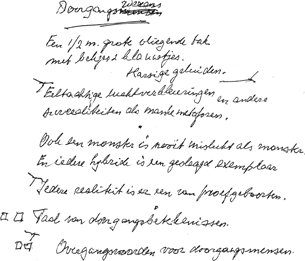 Doorgangswezens
Een 1/2 m. grote vliegende bak
met bekjes & klauwtjes.
Harsige geluiden.
Eeltachtige luchtverkleuringen en andere
surrealiteiten als manke metaforen.
Ook een monster is nooit mislukt als monster.
En iedere hybride is een geslaagd exemplaar
Iedere realiteit is er een van proefgeboorten.
Taal van doorgangsbetekenissen.
Overgangswoorden voor doorgangsmensen.